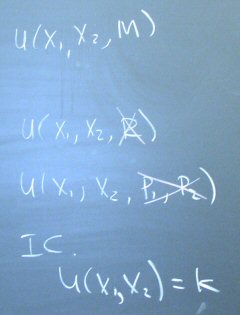 U(X1, X2, M)
U(X1, X2, R)
U(X1, X2, P1, P2)
IC.
U(X1, X2) = K